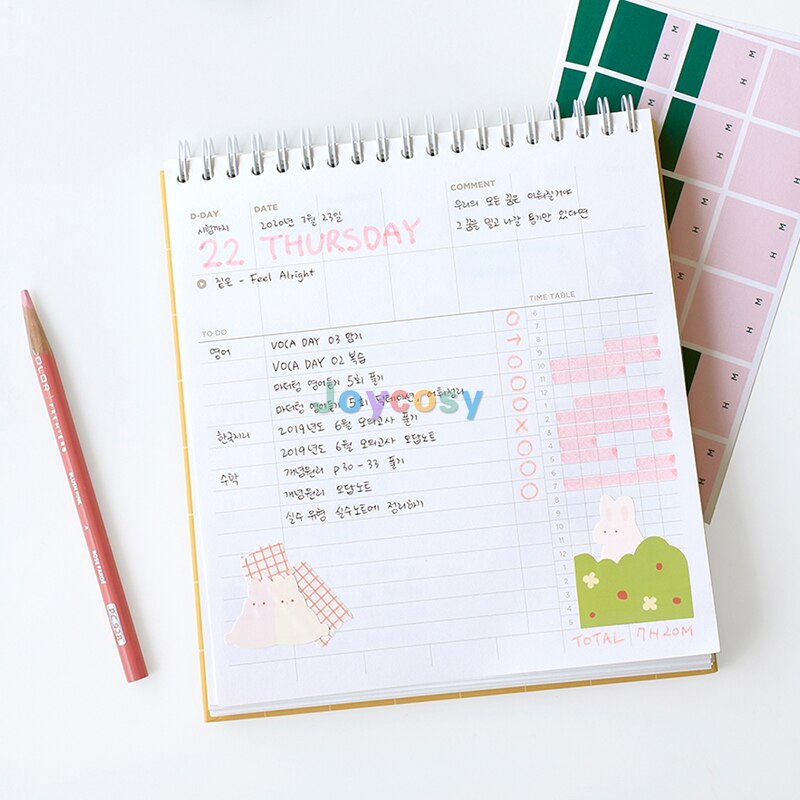 D-DAY
DATE
COMMENT
시험까지
2020년 7월 23일
우리의 모든 꿈은 이뤄질거야
22 THURSDAY
그 꿈을 밀고 나갈 용기만 있다면
짙은 - Feel Alright
TO DO
TIME TABLE
영어 VOCA DAY 03 암기
VOCA DAY 02 복습
마더텅 영어듣기 5회 풀기
마더텅 영어듣기 5회 딕테이션, 어휘정리
한국지리 2019년도 6월 모의고사 풀기
2019년도 6월 모의고사 오답노트
수학 개념원리 p30-33 풀기
개념원리 오답노트
실수 유형 실수노트에 정리하기
6
7
8
9
10
11
12
1
2
3
4
5
6
7
8
9
10
11
12
1
2
3
4
5
TOTAL 7H20M
Joycosy
PREMIER
PC928
H M
H M
H M
H M
H M
H M
H M